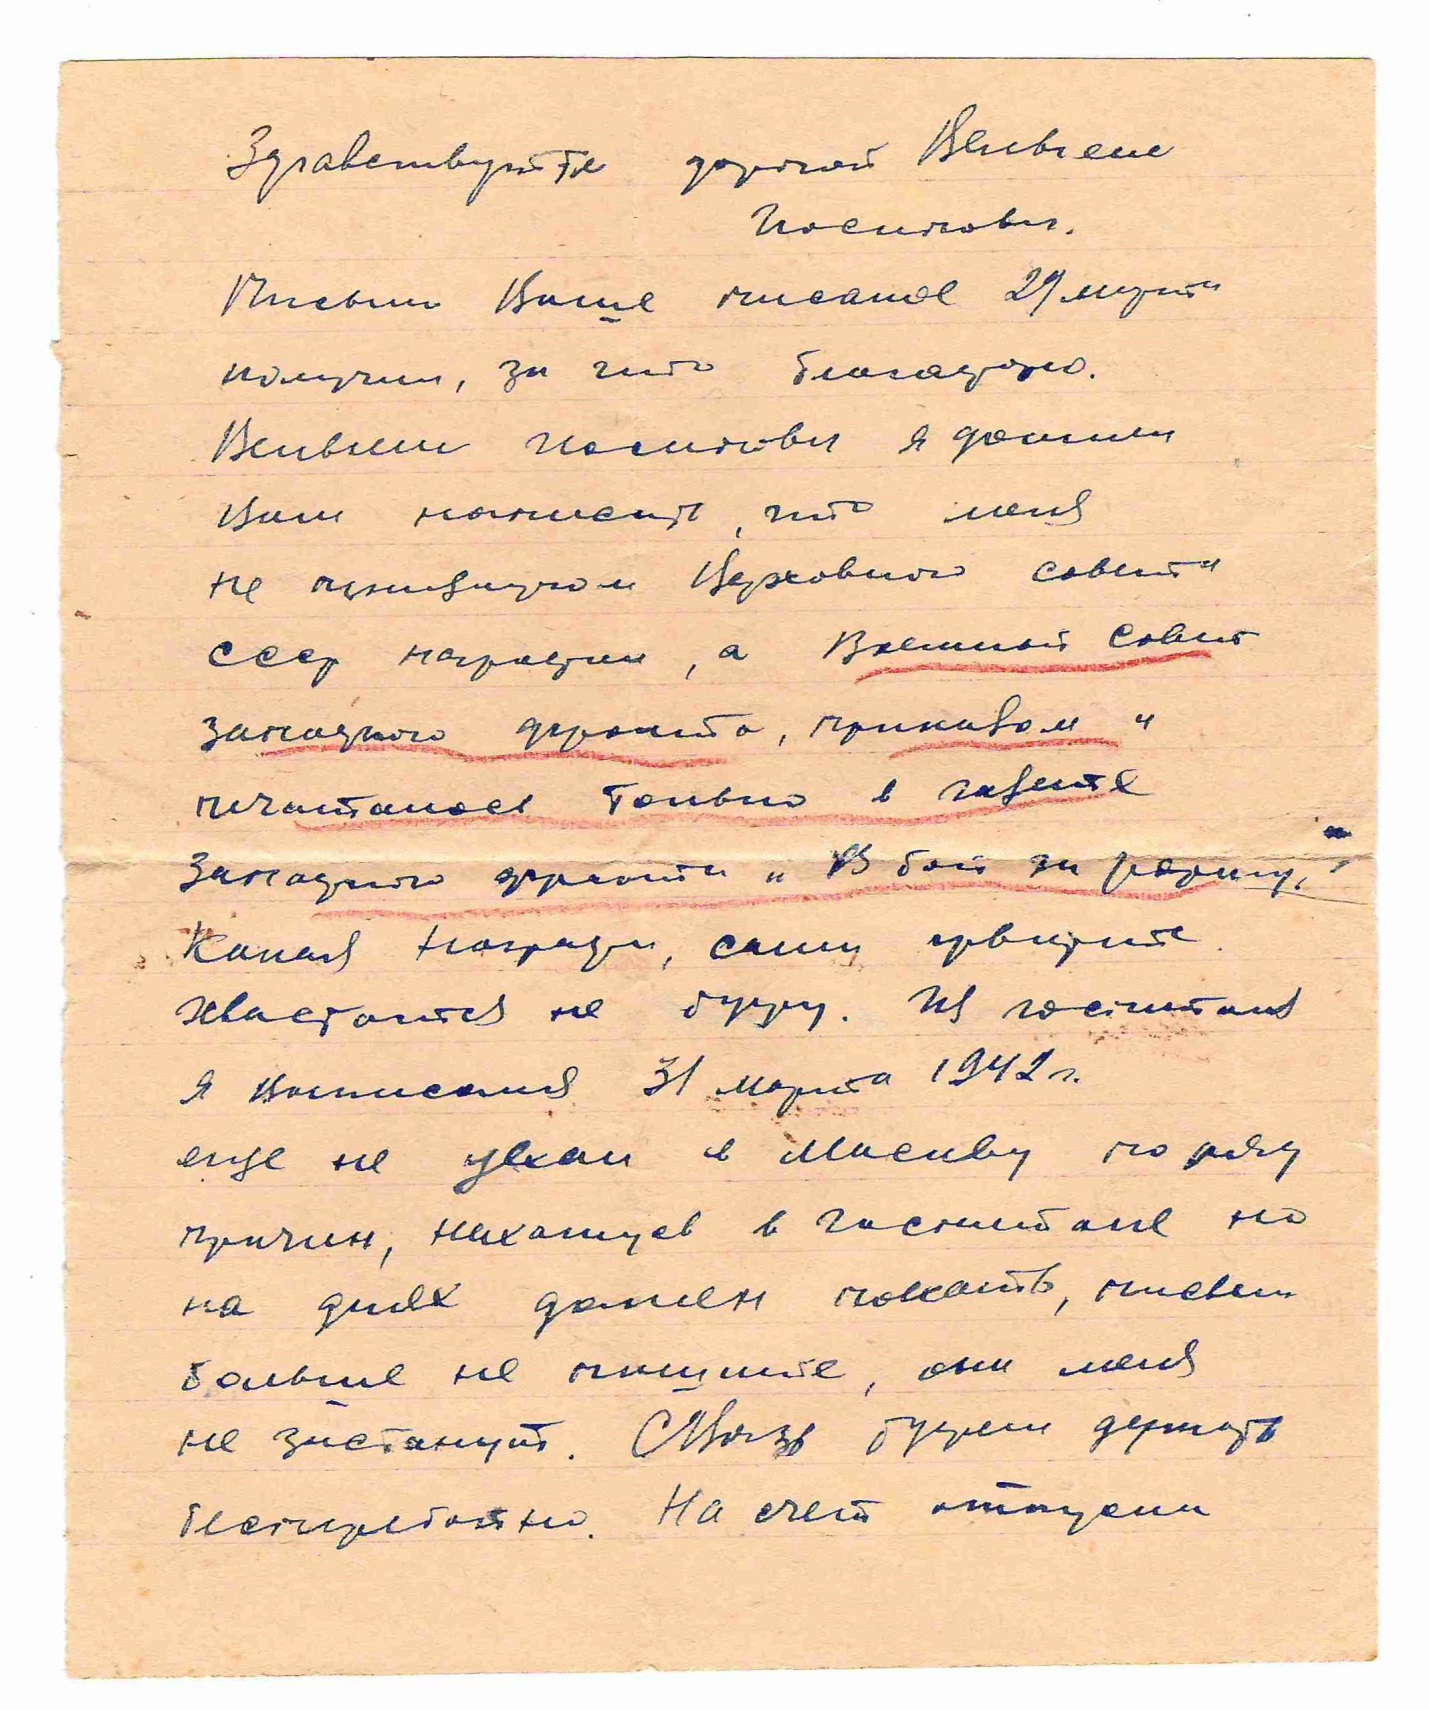 Здравствуйте дорогой
Письмо Ваше писаное 29 марта
получил, за что благодарю.
я должен
Вам написать, что меня
не президиум Верховного совета
СССР наградил, а Военный Совет
Западного фронта, приказом и
печаталось только в газете
Западного фронта „В бой за родину,"
Какая награда, сами увидите
хвастатся не буду. Из госпиталя
я выписался 31 марта 1942 г.
еще не уехал в Москву по ряду
причин, нахожусь в госпитале но
на днях должен поехать, писем
больше не пишите, они меня
не застанут. Связь будем держать
бесперебойно. На счет отпуска